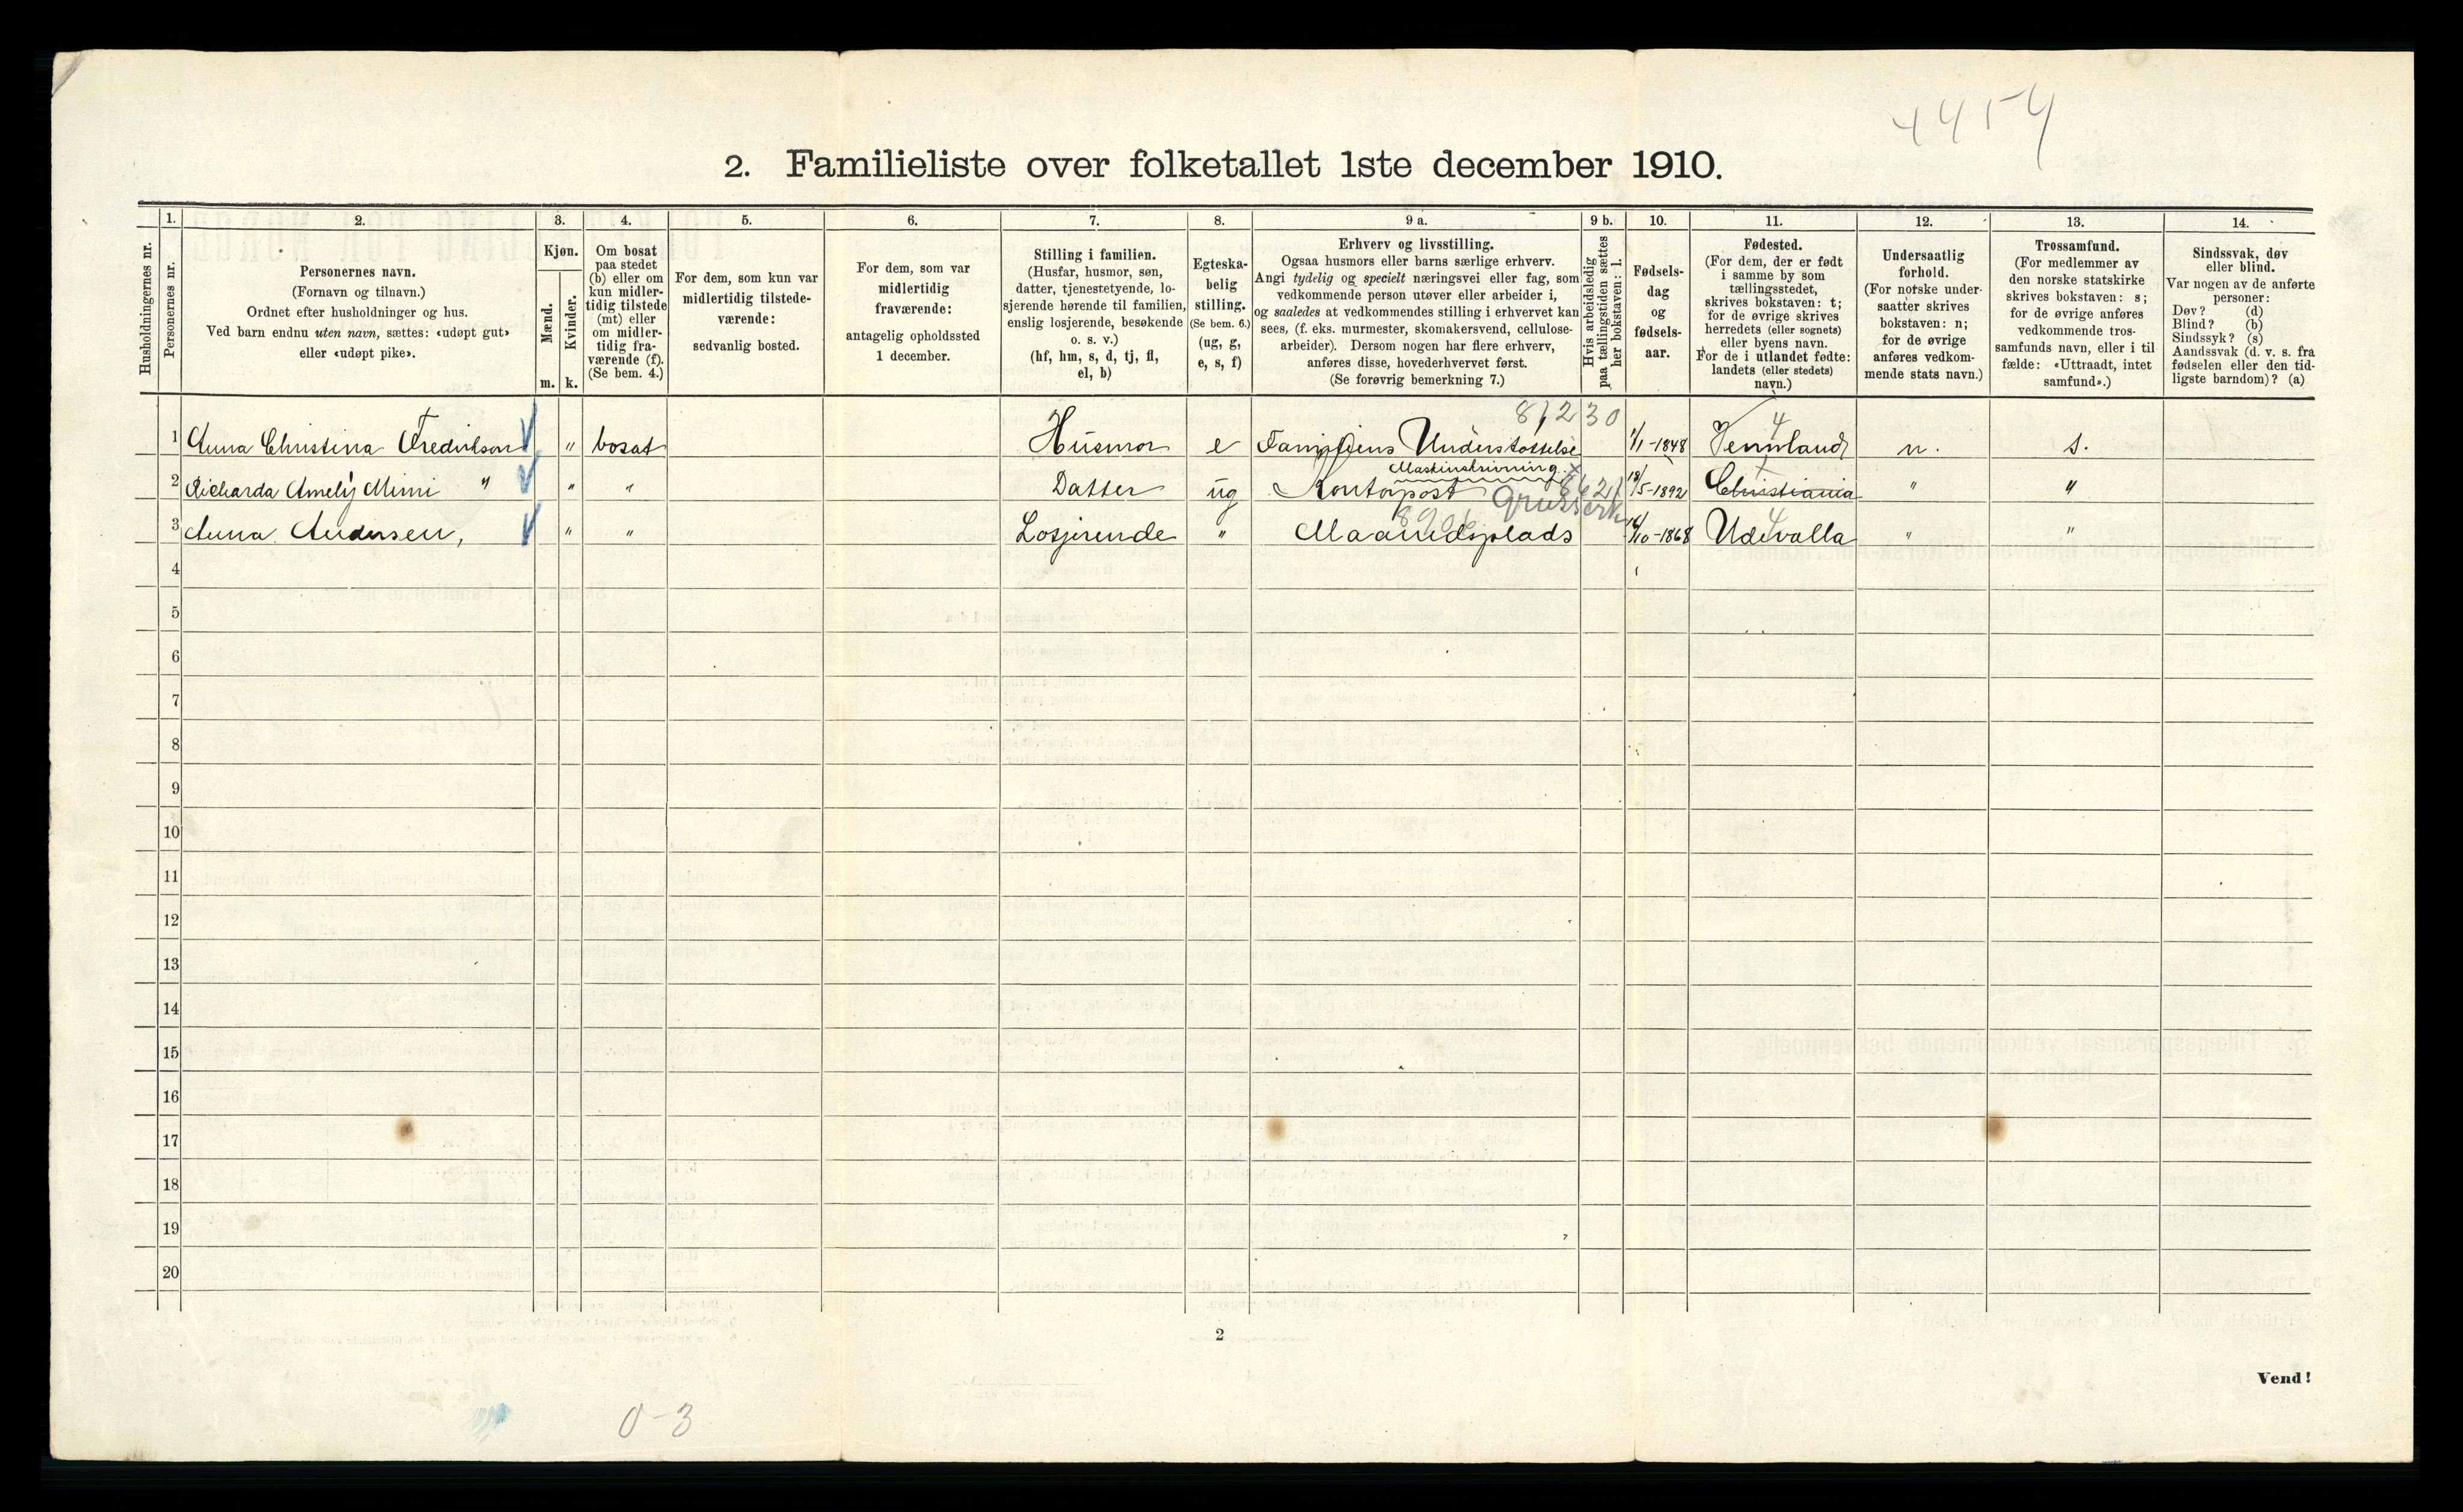 4454
2. Familieliste over folketallet 1ste december 1910.
Husholdningernes nr.
1.
Personernes nr.
2.
Personernes navn.
(Fornavn og tilnavn.)
Ordnet efter husholdninger og hus.
Ved barn endnu uten navn, sættes: «udøpt gut»
eller «udøpt pike».
3.
Kjøn.
Mænd.
Kvinder.
m. k.
4.
Om bosat
paa stedet
(b) eller om
kun midler-
tidig tilstede
(mt) eller
om midler-
tidig fra-
værende (f).
(Se bem. 4.)
5.
For dem, som kun var
midlertidig tilstede-
værende:
sedvanlig bosted.
6.
For dem, som var
midlertidig
fraværende:
antagelig opholdssted
1 december.
7.
Stilling i familien.
(Husfar, husmor, søn,
datter, tjenestetyende, lo-
sjerende hørende til familien,
enslig losjerende, besøkende
o. s. v.)
(hf, hm, s, d, tj, fl,
el, b)
8.
Egteska-
belig
stilling.
(Se bem. 6.)
(ug, g,
e, s, f)
9 a.
Erhverv og livsstilling.
Ogsaa husmors eller barns særlige erhverv.
Angi tydelig og specielt næringsvei eller fag, som
vedkommende person utøver eller arbeider i,
og saaledes at vedkommendes stilling i erhvervet kan
sees, (f. eks. murmester, skomakersvend, cellulose-
arbeider). Dersom nogen har flere erhverv,
anføres disse, hovederhvervet først.
(Se forøvrig bemerkning 7.)
9 b.
Hvis arbeidsledig
paa tællingstiden sættes
her bokstaven: l.
10.
Fødsels-
dag
og
fødsels-
aar.
11.
Fødested.
(For dem, der er født
i samme by som
tællingsstedet,
skrives bokstaven: t;
for de øvrige skrives
herredets (eller sognets)
eller byens navn.
For de i utlandet fødte:
landets (eller stedets)
navn.)
12.
Undersaatlig
forhold.
(For norske under-
saatter skrives
bokstaven: n;
for de øvrige
anføres vedkom-
mende stats navn.)
13.
Trossamfund.
(For medlemmer av
den norske statskirke
skrives bokstaven: s;
for de øvrige anføres
vedkommende tros-
samfunds navn, eller i til
fælde: «Uttraadt, intet
samfund».)
14.
Sindssvak, døv
eller blind.
Var nogen av de anførte
personer:
Døv? (d)
Blind? (b)
Sindssyk? (s)
Aandssvak (d. v. s. fra
fødselen eller den tid-
ligste barndom)? (a)
81,230 4
1 Anna Christina Fredrikson " bosat Husmor e Familiens Understøttelse 1/1-1848 Vermland n. s.
Maskinskrivning
2 Richarda Amely Mimi " " " Datter ug Kontorpost 18/5-1892 Christiania " "
4
3 Anna Andersen, " " Losjerende " Maanedsplads 16/10-1868 Udevalla " "
4
5
6
7
8
9
10
11
12
13
14
15
16
17
18
19
20
2
Vend!
0-3